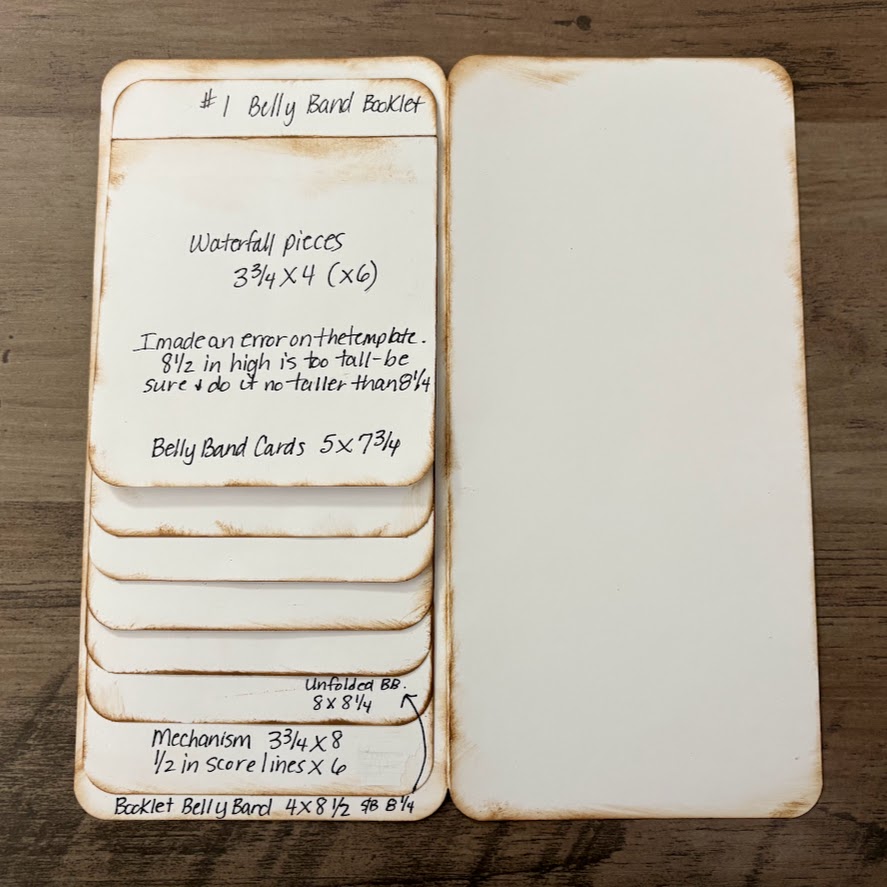 #1 Belly Band Booklet
Waterfall pieces
3 3/4 X 4 (x6)
I made an error on the template.
8 1/2 in high is too tall-be
sure + do it no taller than 8 1/4
Belly Band Cards 5 x 7 3/4
Unfolded BB.
8 x 8 1/4
Mechanism 3 3/4 X 8
1/2 in score lines x 6
Booklet Belly Band 4 x 8 1/2 SB 8 1/4